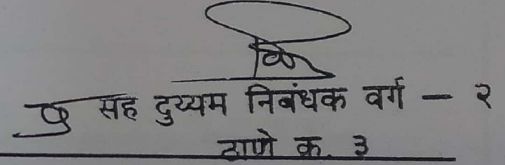 सह दुय्यम निबंधक वर्ग – २
ठाणे क्र. ३